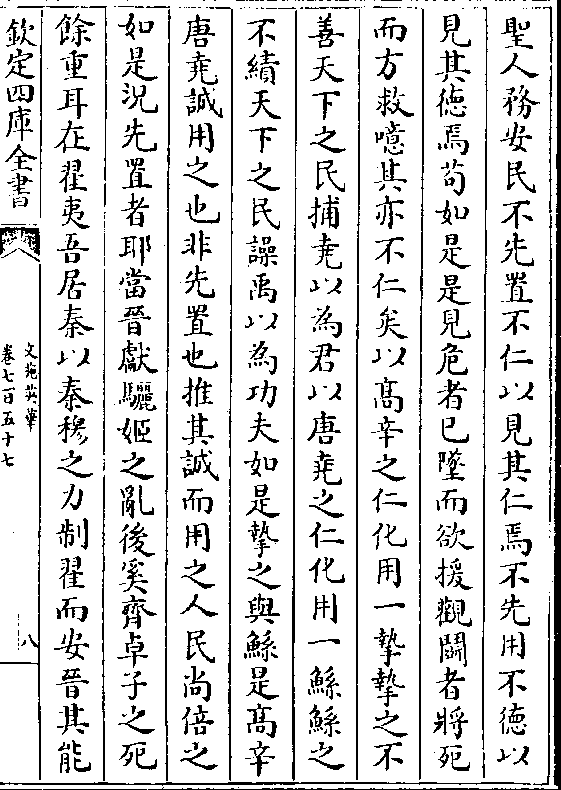 聖人務安民不先置不仁以見其仁焉不先用不德以
見其德焉苟如是是見危者已墜而欲援觀鬭者將死
而方救噫其亦不仁矣以髙辛之仁化用一摯摯之不
善天下之民捕堯以為君以唐堯之仁化用一鯀鯀之
不績天下之民譟禹以為功夫如是摯之與鯀是髙辛
唐堯誠用之也非先置也推其誠而用之人民尚倍之
如是況先置者耶當晉獻驪姬之亂後奚齊卓子之死
餘重耳在翟夷吾居秦以秦穆之力制翟而安晉其能
欽定四庫全書
文苑英華
卷七百五十七
八